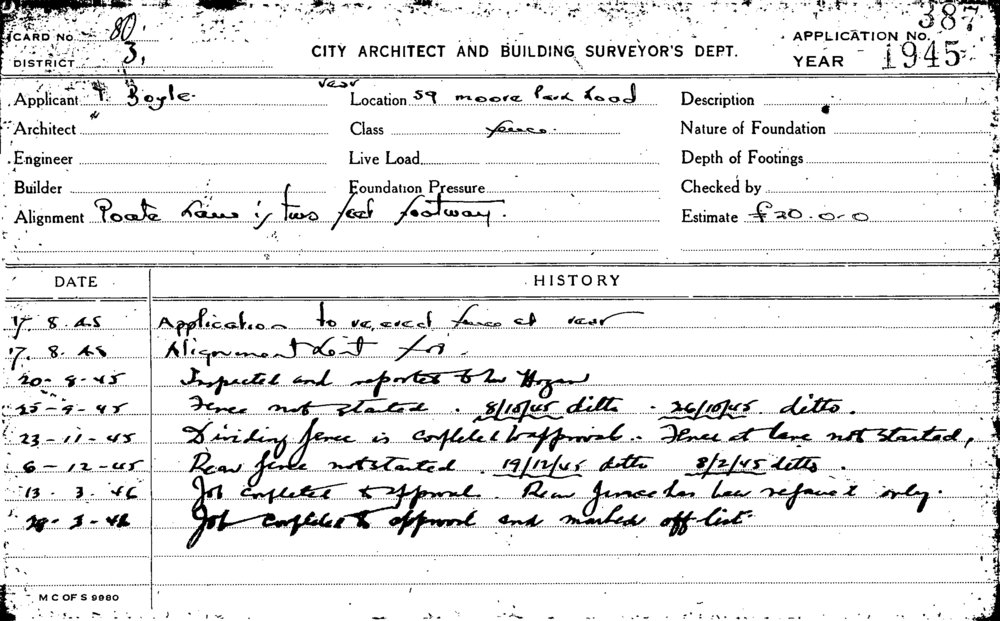 CARD No. 80.
387
APPLICATION No.
DISTRICT 3.
CITY ARCHITECT AND BUILDING SURVEYOR'S DEPT.
YEAR 1945
rear
Applicant T. Boyle. Location 59 Moore Park Road Description
Architect " Class fence. Nature of Foundation
Engineer Live Load Depth of Footings
Builder Foundation Pressure Checked by
Alignment Poate Lane is two feet footway. Estimate £20.0.0
DATE HISTORY
17. 8. 45 Application to re,erect fence at rear
17. 8. 45 Alignment
20-8-45 Inspected and reported to Mr Hogan
25-9-45 Fence not started. 8/10/45 ditto. 26/10/45 ditto.
23-11-45 Dividing fence is completed to approval. Fence at lane not started,
6-12-45 Rear fence not started. 19/12/45 ditto 8/2/45 ditto.
13. 3. 46 Job completed to approval. Rear fence has been only.
28-3-46 Job completed to approval and marked off list.
M C OF S 9980